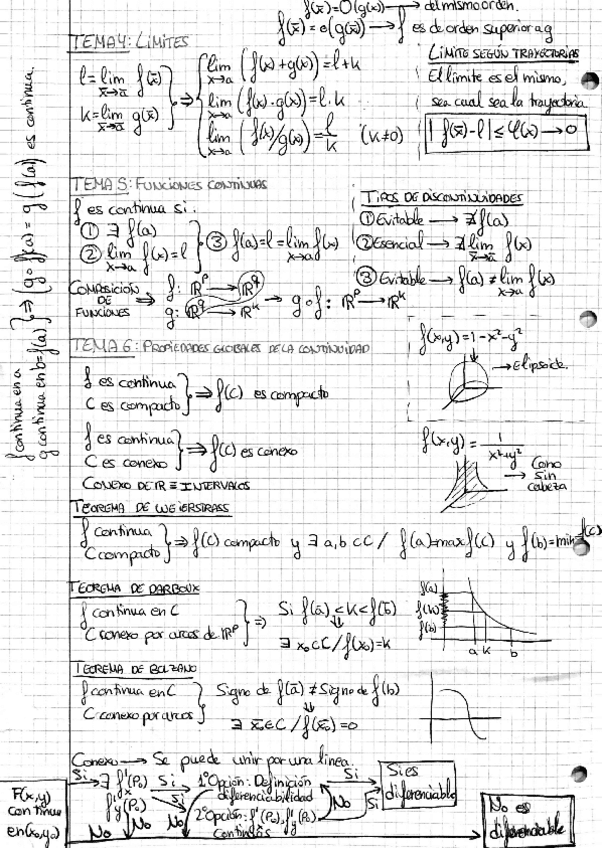 f(x̄)=O(g(x)) → del mismo orden.
f(x̄)=o(g(x̄)) → f es de orden superior a g
TEMA 4: LÍMITES
l=lim f(x̄)
x̄→ā
k=lim g(x̄)
x̄→ā
⇒
lim (f(x)+g(x))=l+k
x→a
lim (f(x)·g(x))=l·k
x→a
lim (f(x)/g(x))=l/k (k≠0)
x→a
LÍMITE SEGÚN TRAYECTORIAS
El límite es el mismo,
sea cual sea la trayectoria
|f(x̄)-l|≤φ(x)→0
f continua en a
g continua en b=f(a)
⇒ (g∘f)(a)=g(f(a)) es continua.
TEMA 5: FUNCIONES CONTINUAS
f es continua si:
① ∃ f(a)
② lim f(x)=l
x→a
③ f(a)=l=lim f(x)
x→a
TIPOS DE DISCONTINUIDADES
① Evitable → ∄ f(a)
② Esencial → ∄ lim f(x)
x̄→ā
③ Evitable → f(a)≠lim f(x)
x→a
COMPOSICIÓN DE FUNCIONES ⇒
f: ℝᵖ → ℝ^q
g: ℝ^q → ℝᵏ
→ g∘f: ℝᵖ→ℝᵏ
TEMA 6: PROPIEDADES GLOBALES DE LA CONTINUIDAD
f es continua
C es compacto
⇒ f(C) es compacto
f es continua
C es conexo
⇒ f(C) es conexo
CONEXO DE ℝ ≡ INTERVALOS
f(x,y)=1-x²-y²
→ Elipsoide.
f(x,y)=1/(x²+y²)
→ Cono sin cabeza
TEOREMA DE WEIERSTRASS
f continua
C compacto
⇒ f(C) compacto y ∃ a,b ⊂ C / f(a)=max f(C) y f(b)=min f(C)
TEOREMA DE DARBOUX
f continua en C
C conexo por arcos de ℝᵖ
⇒ Si f(ā)<K<f(b̄)
⇓
∃ x₀⊂C/f(x₀)=K
f(a)
f(k)
f(b)
a k b
TEOREMA DE BOLZANO
f continua en C
C conexo por arcos
Signo de f(ā) ≠ Signo de f(b)
⇓
∃ x̄₀∈C / f(x̄₀)=0
Conexo → Se puede unir por una línea.
F(x,y) continua en (x₀,y₀)
Si
∃ f'x(P₀)
f'y(P₀)
Si
Si
1ªOpción: Definición diferenciabilidad
2ªOpción: f'x(P₀), f'y(P₀) continuas
Si
No
Si
Si es diferenciable
No
No
No
No es diferenciable